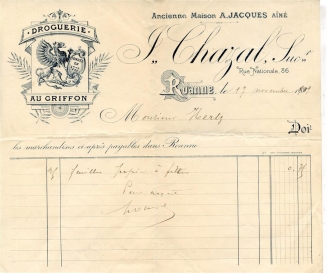 DROGUERIE
AU GRIFFON
Ancienne Maison A. JACQUES AÎNÉ
J. Chazal, Sucr
Rue Nationale, 36
Roanne, le 17 novembre
Monsieur
Doit
les marchandises ci-après payables dans Roanne
25 feuilles papier à filtrer
Pour acquit